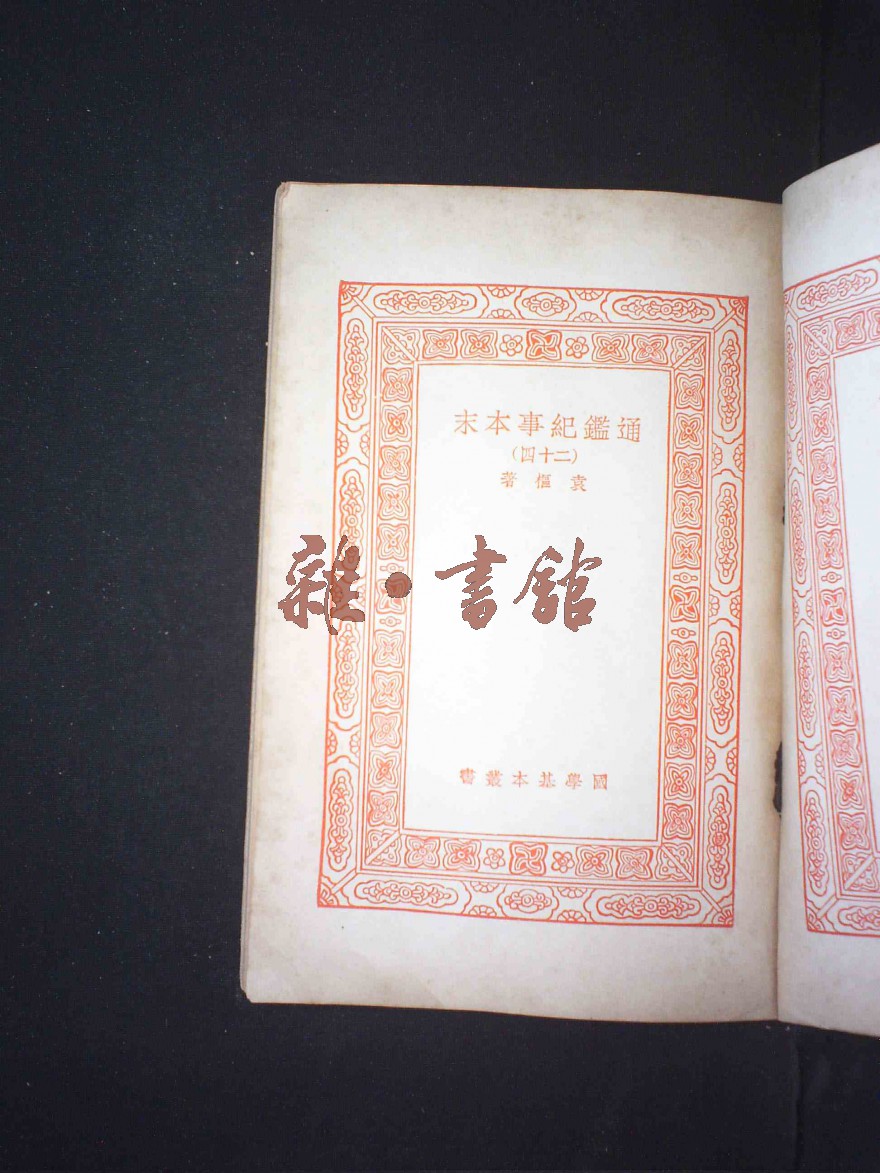 通鑑紀事本末
(二十四)
袁樞著
雜·書館
國學基本叢書